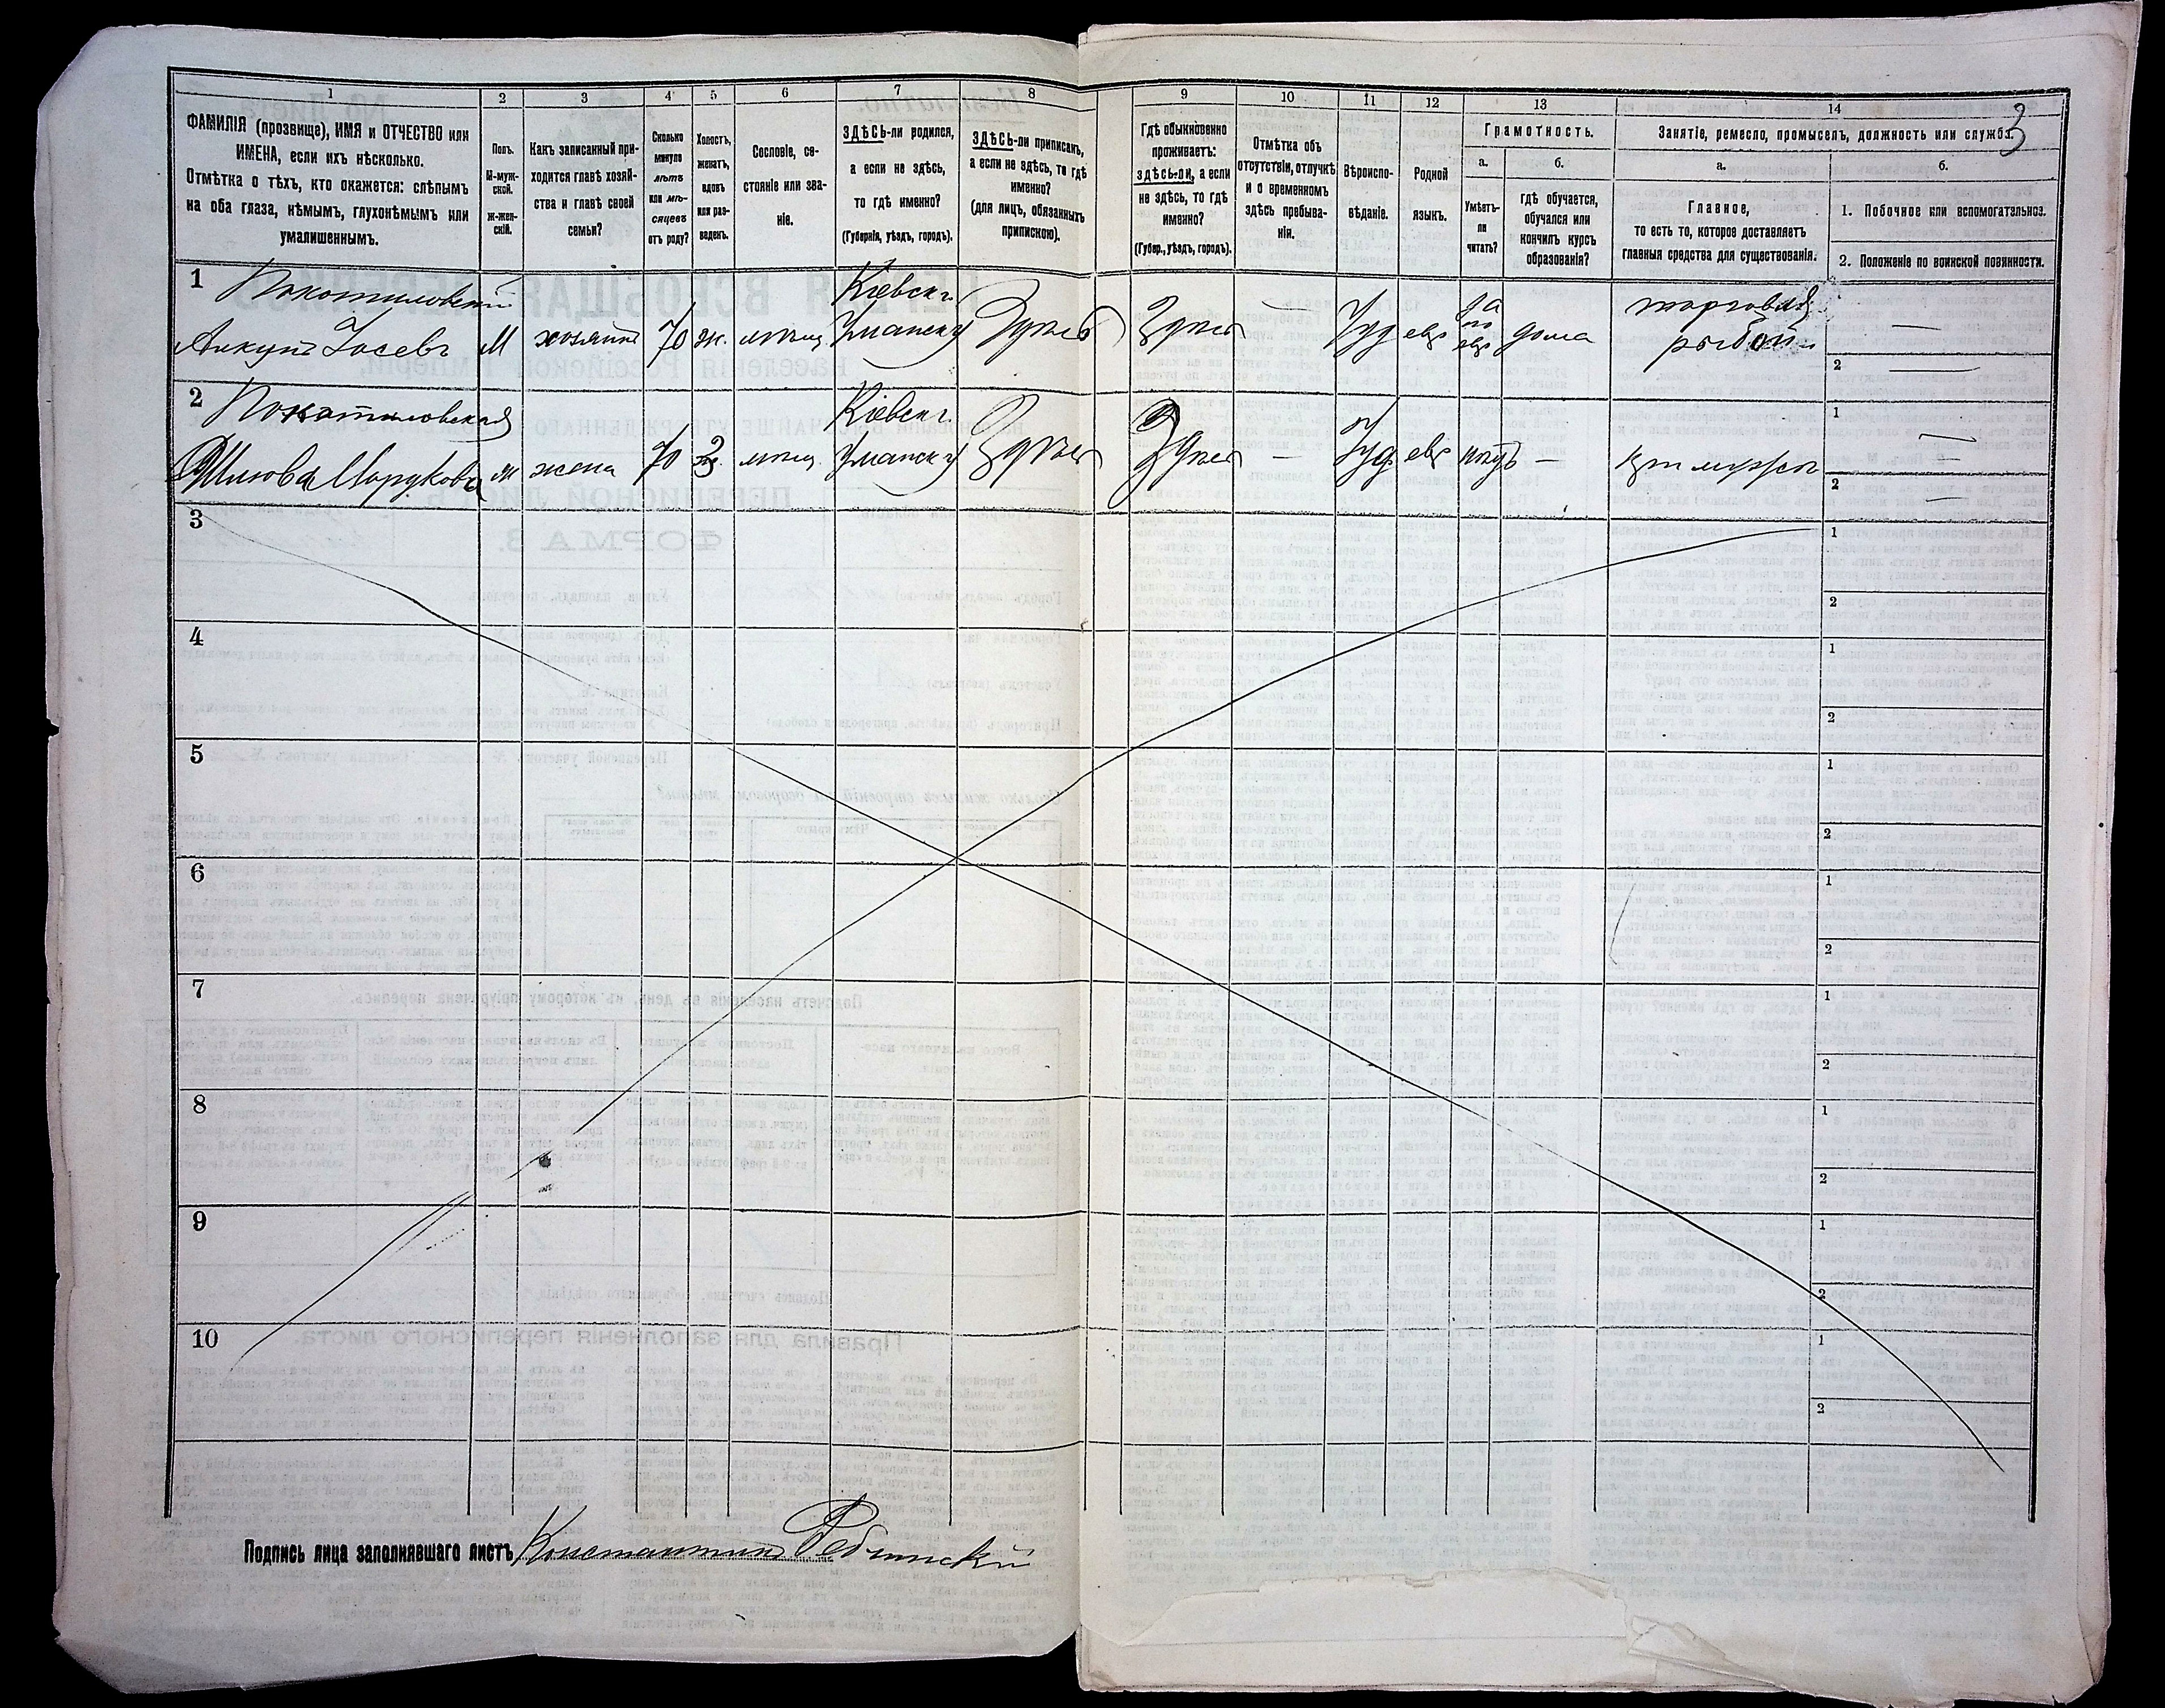 3
1
2
3
4
5
6
7
8
9
10
11
12
13
14
ФАМИЛІЯ (прозвище), ИМЯ и ОТЧЕСТВО или
ИМЕНА, если ихъ нѣсколько.
Отмѣтка о тѣхъ, кто окажется: слѣпымъ
на оба глаза, нѣмымъ, глухонѣмымъ или
умалишеннымъ.
Полъ.
М-муж-
ской.
Ж-жен-
скій.
Какъ записанный при-
ходится главѣ хозяй-
ства и главѣ своей
семьи?
Сколько
минуло
лѣтъ
или мѣ-
сяцевъ
отъ роду?
Холостъ,
женатъ,
вдовъ
или раз-
веденъ.
Сословіе, со-
стояніе или зва-
ніе.
ЗДѢСЬ-ли родился,
а если не здѣсь,
то гдѣ именно?
(Губернія, уѣздъ, городъ).
ЗДѢСЬ-ли приписанъ,
а если не здѣсь, то гдѣ
именно?
(для лицъ, обязанныхъ
припискою).
Гдѣ обыкновенно
проживаетъ:
здѣсь-ли, а если
не здѣсь, то гдѣ
именно?
(Губер., уѣздъ, городъ).
Отмѣтка объ
отсутствіи, отлучкѣ
и о временномъ
здѣсь пребыва-
ніи.
Вѣроиспо-
вѣданіе.
Родной
языкъ.
Грамотность.
а.
Умѣетъ-
ли
читать?
б.
гдѣ обучается,
обучался или
кончилъ курсъ
образованія?
Занятіе, ремесло, промыселъ, должность или служба.
а.
Главное,
то есть то, которое доставляетъ
главныя средства для существованія.
б.
1. Побочное или вспомогательное.
2. Положеніе по воинской повинности.
1
Покотиловскій
М
хозяинъ
70
Кіевск.
Здѣсь
Здѣсь
—
Іуд
евр
да
по
евр
дома
торговля
рыбой
—
2 —
2
Покотиловская
жена
70
Кіевск.
Здѣсь
Здѣсь
—
Іуд.
евр
нѣтъ
—
при мужѣ
1 —
2 —
3
1
2
4
1
2
5
1
2
6
1
2
7
1
2
8
1
2
9
1
2
10
1
2
Подпись лица заполнявшаго листъ Константинъ